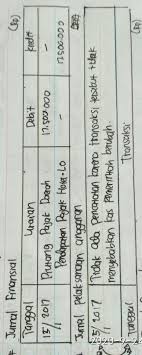 Jurnal Finansial
Tanggal Uraian Debit Kredit
13/1 2017 Piutang Pajak Daerah 17.500.000 -
Pendapatan Pajak Hotel-LO - 17.500.000
Jurnal Pelaksanaan anggaran
13/1 2017 Tidak ada pencatatan karena transaksi tersebut tidak
mengakibatkan kas pemerintah berubah
Tanggal Transaksi